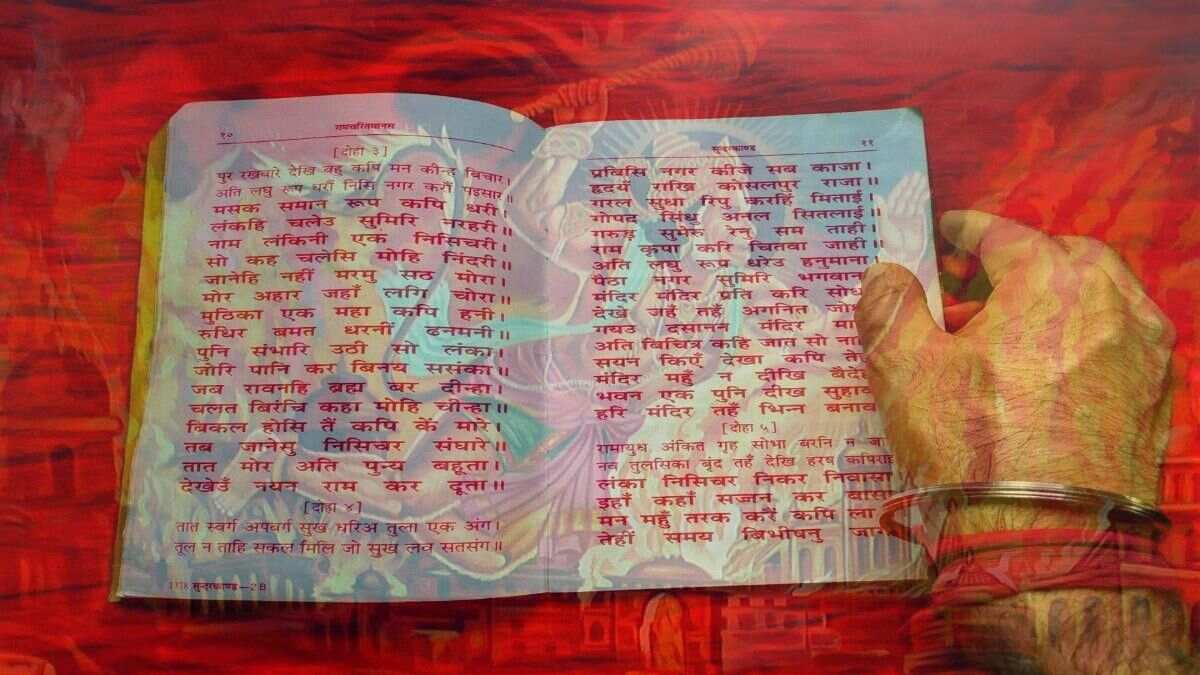 १०
रामचरितमानस
[दोहा ३]
पुर रखवारे देखि बहु कपि मन कीन्ह बिचार।
अति लघु रूप धरौं निसि नगर करौं पइसार॥
मसक समान रूप कपि धरी।
लंकहि चलेउ सुमिरि नरहरी॥
नाम लंकिनी एक निसिचरी।
सो कह चलेसि मोहि निंदरी॥
जानेहि नहीं मरमु सठ मोरा।
मोर अहार जहाँ लगि चोरा॥
मुठिका एक महा कपि हनी।
रुधिर बमत धरनीं ढनमनी॥
पुनि संभारि उठी सो लंका।
जोरि पानि कर बिनय ससंका॥
जब रावनहि ब्रह्म बर दीन्हा।
चलत बिरंचि कहा मोहि चीन्हा॥
बिकल होसि तैं कपि कें मारे।
तब जानेसु निसिचर संघारे॥
तात मोर अति पुन्य बहूता।
देखेउँ नयन राम कर दूता॥
[दोहा ४]
तात स्वर्ग अपबर्ग सुख धरिअ तुला एक अंग।
तूल न ताहि सकल मिलि जो सुख लव सतसंग॥
सुन्दरकाण्ड—2 B
सुन्दरकाण्ड
११
प्रबिसि नगर कीजे सब काजा।
हृदयँ राखि कोसलपुर राजा॥
गरल सुधा रिपु करहिं मिताई।
गोपद सिंधु अनल सितलाई॥
गरुड़ सुमेरु रेनु सम ताही।
राम कृपा करि चितवा जाही॥
अति लघु रूप धरेउ हनुमाना।
पैठा नगर सुमिरि भगवाना
मंदिर मंदिर प्रति करि सोध
देखे जहँ तहँ अगनित जो
गयउ दसानन मंदिर मा
अति बिचित्र कहि जात सो ना
सयन किएँ देखा कपि ते
मंदिर महुँ न दीखि बैदे
भवन एक पुनि दीख सुहाव
हरि मंदिर तहँ भिन्न बनाव
[दोहा ५]
रामायुध अंकित गृह सोभा बरनि न जा
नव तुलसिका बृंद तहँ देखि हरष कपिरा
लंका निसिचर निकर निवासा
इहाँ कहाँ सज्जन कर बासा
मन महुँ तरक करैं कपि ला
तेहीं समय बिभीषनु जा